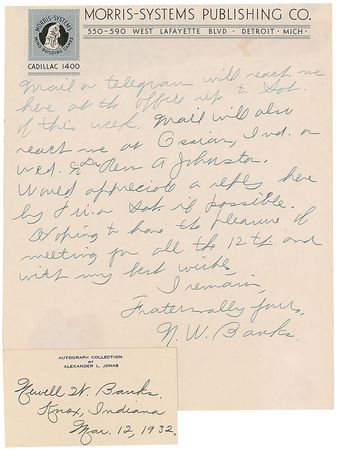 MORRIS-SYSTEMS PUBLISHING CO.
550-590 WEST LAFAYETTE BLVD · DETROIT · MICH·
MORRIS-SYSTEMS
CADILLAC 1400
Mail or telegram will reach me
here at the office up to Sat.
of this week. Mail will also
reach me at Ossian, Ind. on
Wed. Glen A Johnston.
Would appreciate a reply here
by Fri. or Sat. if possible.
Hoping to have the pleasure of
meeting you all the 12th and
with my best wishes
I remain,
Fraternally yours,
N. W. Banks.
AUTOGRAPH COLLECTION
OF
ALEXANDER L. JONAS
Newell W. Banks.
Knox, Indiana
Mar. 12, 1932.